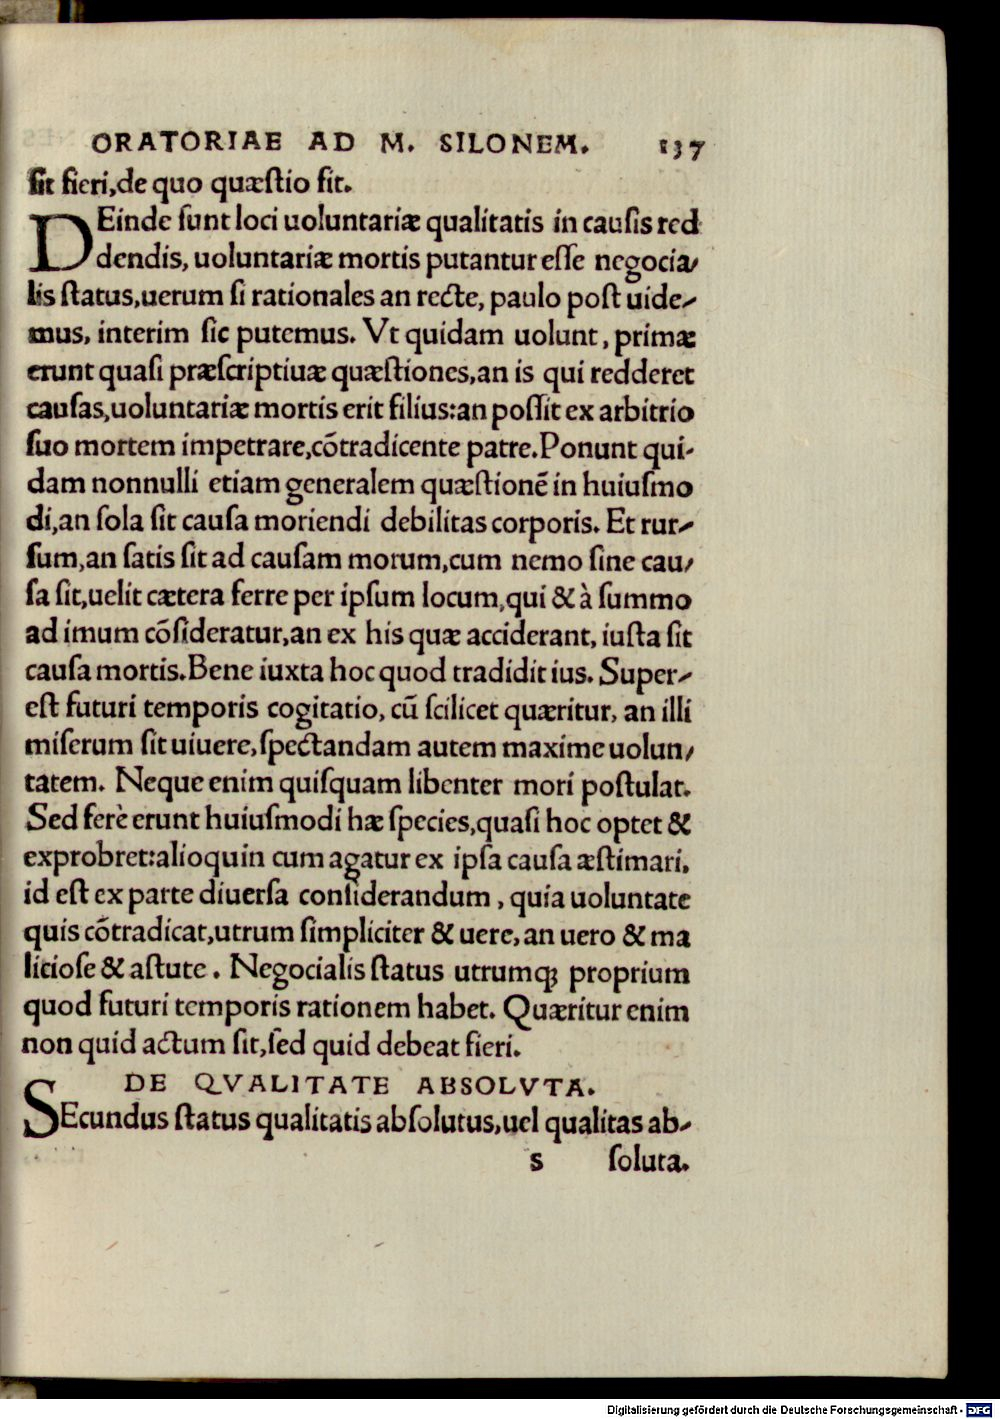 ORATORIAE AD M. SILONEM. 137
ſit fieri,de quo quæſtio ſit.
DEinde ſunt loci uoluntariæ qualitatis in cauſis red
dendis, uoluntariæ mortis putantur eſſe negocia/
lis ſtatus,uerum ſi rationales an recte, paulo poſt uide/
mus, interim ſic putemus. Vt quidam uolunt, primæ
erunt quaſi præſcriptiuæ quæſtiones,an is qui redderet
cauſas,uoluntariæ mortis erit filius:an poſſit ex arbitrio
ſuo mortem impetrare,cõtradicente patre.Ponunt qui-
dam nonnulli etiam generalem quæſtionẽ in huiuſmo
di,an ſola ſit cauſa moriendi debilitas corporis. Et rur/
ſum,an ſatis ſit ad cauſam morum,cum nemo ſine cau/
ſa ſit,uelit cætera ferre per ipſum locum,qui & à ſummo
ad imum cõſideratur,an ex his quæ acciderant, iuſta ſit
cauſa mortis.Bene iuxta hoc quod tradidit ius. Super/
eſt futuri temporis cogitatio, cũ ſcilicet quæritur, an illi
miſerum ſit uiuere,ſpectandam autem maxime uolun/
tatem. Neque enim quiſquam libenter mori poſtulat.
Sed ferè erunt huiuſmodi hæ ſpecies,quaſi hoc optet &
exprobret:alioquin cum agatur ex ipſa cauſa æſtimari.
id eſt ex parte diuerſa conſiderandum , quia uoluntate
quis cõtradicat,utrum ſimpliciter & uere, an uero & ma
litioſe & aſtute . Negocialis ſtatus utrumqꝫ proprium
quod futuri temporis rationem habet. Quæritur enim
non quid actum ſit,ſed quid debeat fieri.
DE QVALITATE ABSOLVTA.
SEcundus ſtatus qualitatis abſolutus,uel qualitas ab/
s ſoluta.
Digitalisierung gefördert durch die Deutsche Forschungsgemeinschaft - DFG